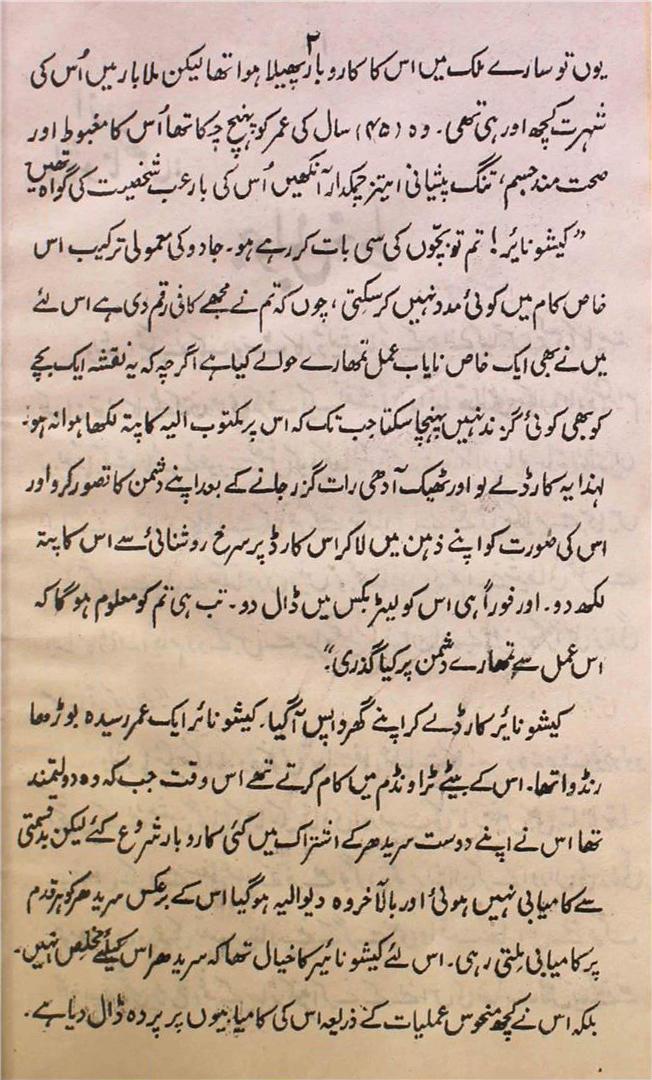 ۲
یوں تو سارے ملک میں اس کا کاروبار پھیلا ہوا تھا لیکن ملابار میں اُس کی
شہرت کچھ اور ہی تھی۔ وہ (۴۵) سال کی عمر کو پہنچ چکا تھا اُس کا مضبوط اور
صحت مند جسم، تنگ پیشانی، تیز چمکدار آنکھیں اُس کی بارعب شخصیت کی گواہ تھیں
”کیشو نایر! تم تو بچّوں کی سی بات کر رہے ہو۔ جادو کی معمولی ترکیب اس
خاص کام میں کوئی مدد نہیں کر سکتی، چوں کہ تم نے مجھے کافی رقم دی ہے اس لئے
میں نے بھی ایک خاص نایاب عمل تمھارے حوالے کیا ہے اگرچہ کہ یہ نقشہ ایک بچے
کو بھی کوئی گزند نہیں پہنچا سکتا جب تک کہ اس پر مکتوب الیہ کا پتہ لکھا ہوا نہ ہو۔
لہذا یہ کارڈ لے لو اور ٹھیک آدھی رات گزر جانے کے بعد اپنے دشمن کا تصور کرو اور
اس کی صورت کو اپنے ذہن میں لا کر اس کارڈ پر سرخ روشنائی سے اس کا پتہ
لکھ دو۔ اور فوراً ہی اس کو لیٹر بکس میں ڈال دو۔ تب ہی تم کو معلوم ہو گا کہ
اس عمل سے تمھارے دشمن پر کیا گذری“۔
کیشو نایر کارڈ لے کر اپنے گھر واپس آ گیا۔ کیشو نائر ایک عمر رسیدہ بوڑھا
رنڈوا تھا۔ اس کے بیٹے ٹراونڈم میں کام کرتے تھے اس وقت جب کہ وہ دولتمند
تھا اس نے اپنے دوست سریدھر کے اشتراک میں کئی کاروبار شروع کئے لیکن بدقسمتی
سے کامیابی نہیں ہوئی اور بالآخر وہ دیوالیہ ہو گیا اس کے برعکس سریدھر کو ہر قدم
پر کامیابی ملتی رہی۔ اس لئے کیشو نائیر کا خیال تھا کہ سریدھر اس کیلئے مخلص نہیں۔
بلکہ اس نے کچھ منحوس عملیات کے ذریعہ اس کی کامیابیوں پر پردہ ڈال دیا ہے۔